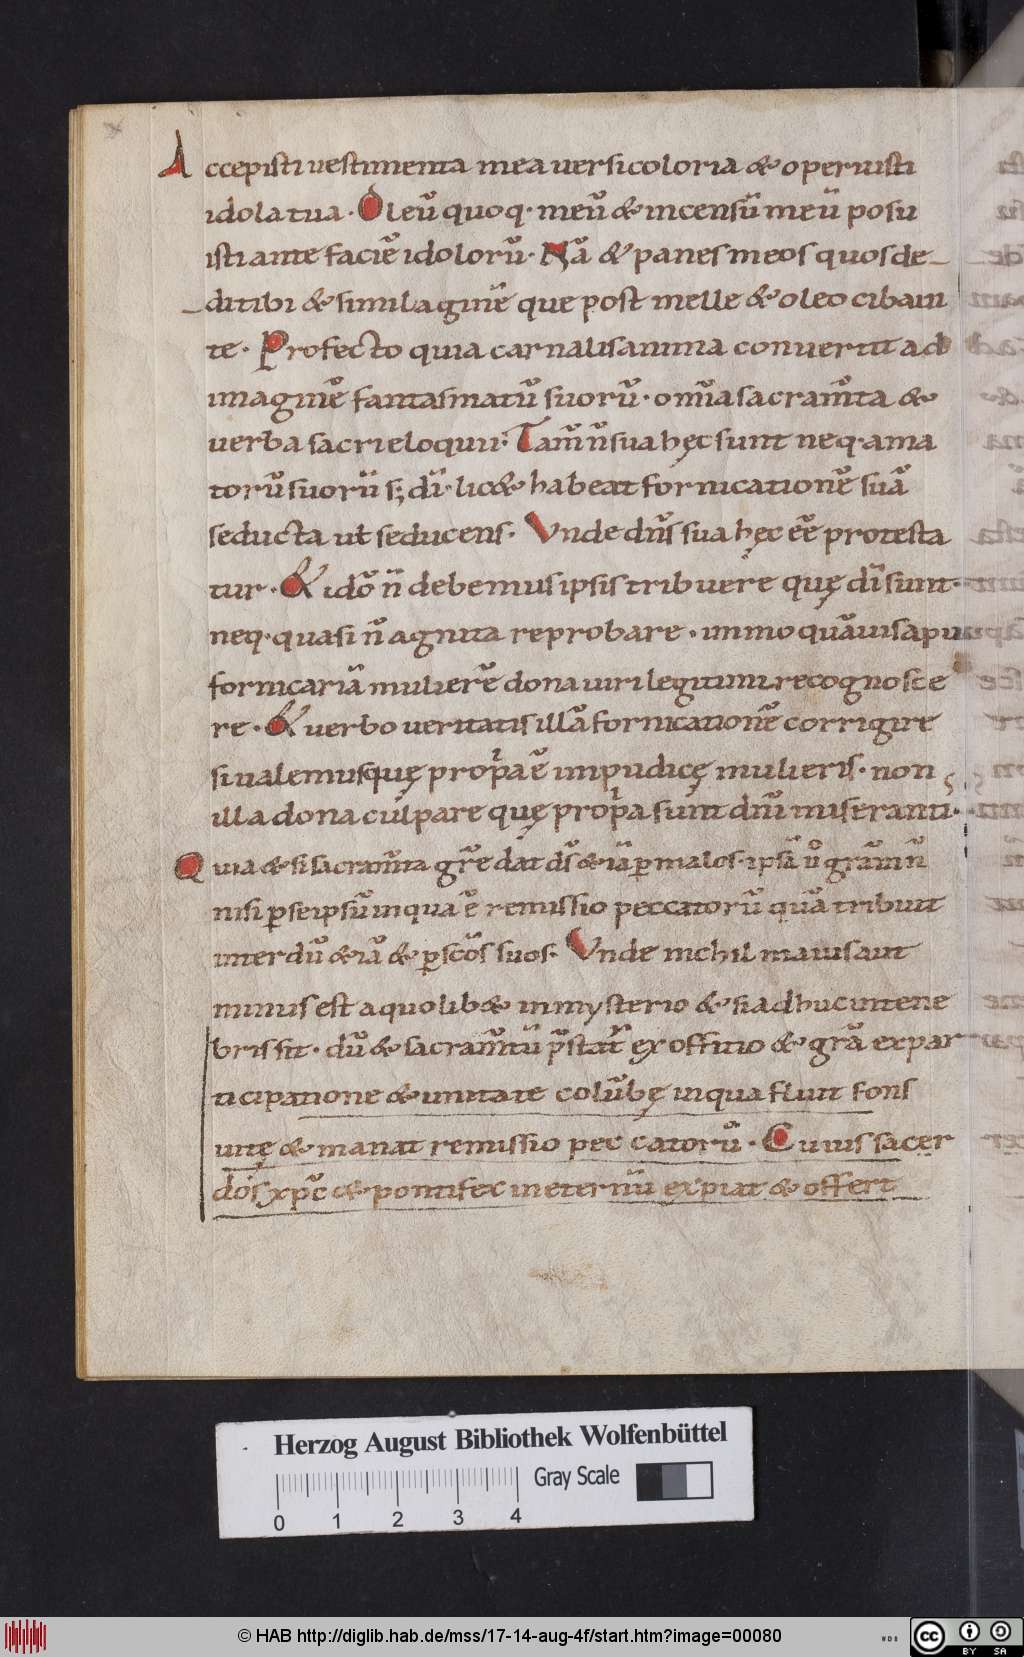 Accepisti uestimenta mea uersicoloria & operuisti
idola tua· Oleū quoq· meū & incensū meū posu
isti ante faciē idolorū· Nā & panes meos quos de
diti tibi & similaginē que post melle & oleo cibaui
te· Profecto quia carnalis anima conuertit ad
imaginē fantasmatū suorū· om̄ia sacram̄ta &
uerba sacri eloquii· Tam̄ n̄ sua hęc sunt neq· ama
torū suorū s; dī· lic& habeat fornicationē suā
seducta ut seducens· Vnde dn̄s sua hęc eē protesta
tur· & idō n̄ debemus ipsis tribuere quę dī sunt·
neq· quasi n̄ agnita reprobare· immo quāuis apu
fornicariā mulierē dona uiri legitimi recognosce
re· & uerbo ueritatis illā fornicationē corrigire
si ualemus quę prop̍a ē impudicę mulieris· non
illa dona culpare quę prop̍a sunt dn̄i miseranti·
Quia & si sacram̄ta grē dat ds̄ & iā p̱ malos· ipsā ū grām n̄
nisi p̱ seipsū in qua ē remissio peccatorū quā tribuit
interdū & iā & p̱ scōs suos· Vnde nichil maius aut
minus est a quolib& in mysterio & si adhuc in tene
bris sit· dū & sacram̄tū p̄stat̄ ex offitio & grā ex par
ticipatione & unitate colūbę in qua fluit fons
uitę & manat remissio peccatorū· Cuius sacer
dos xp̄c & pontifex in eternū expiat & offert
Herzog August Bibliothek Wolfenbüttel
Gray Scale
0 1 2 3 4
© HAB http://diglib.hab.de/mss/17-14-aug-4f/start.htm?image=00080
WDB
cc BY SA